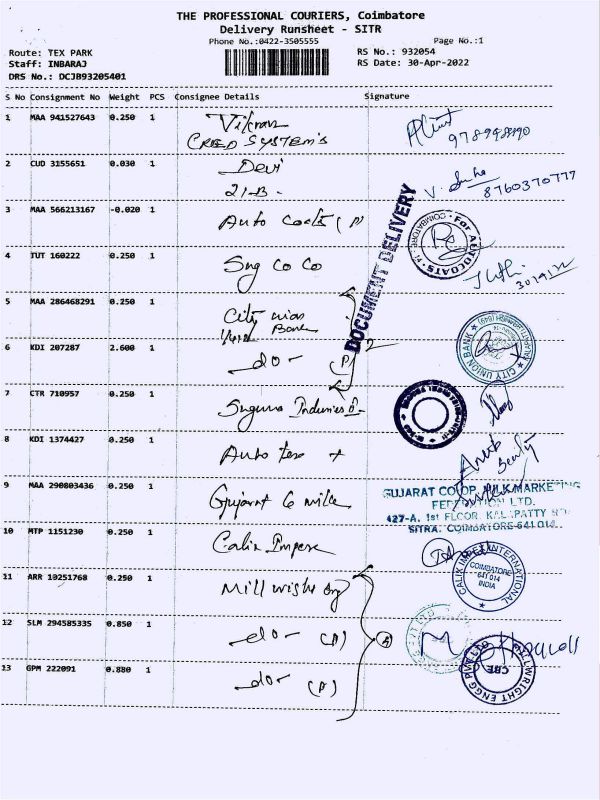 THE PROFESSIONAL COURIERS, Coimbatore
Delivery Runsheet - SITR
Phone No.:0422-3505555
Page No.:1
Route: TEX PARK
Staff: INBARAJ
DRS No.: DCJB93205401
RS No.: 932054
RS Date: 30-Apr-2022
S No Consignment No Weight PCS Consignee Details Signature
1 MAA 941527643 0.250 1 Vikran
CREED SYSTEM'S
2 CUD 3155651 0.030 1 Devi
21-B.
V. 8760370777
3 MAA 566213167 -0.020 1 Auto Coats (P)
DOCUMENT DELIVERY
For AUTOCOATS COIMBATORE - 14
4 TUT 160222 0.250 1 Sng Co Co
5 MAA 286468291 0.250 1 City union
Bank
CITY UNION BANK
6 KDI 207287 2.600 1 do - (P) 2
7 CTR 710957 0.250 1 Suguna
8 KDI 1374427 0.250 1 Auto tex
9 MAA 290803436 0.250 1 Gujarat Co milk
GUJARAT CO.OP. MILK MARKETING
FEDERATION LTD.
427-A, 1st FLOOR, KALAPATTY
SITRA, COIMBATORE-641 014.
10 MTP 1151230 0.250 1 Calix Impex
CALIX IMPEX INTERNATIONAL
COIMBATORE
641 014
INDIA
11 ARR 10251768 0.250 1 Mill wright
12 SLM 294585335 0.850 1 do - (P) 4
13 GPM 222091 0.880 1 do - (P)
MILLWRIGHT ENGG PVT LTD CBE